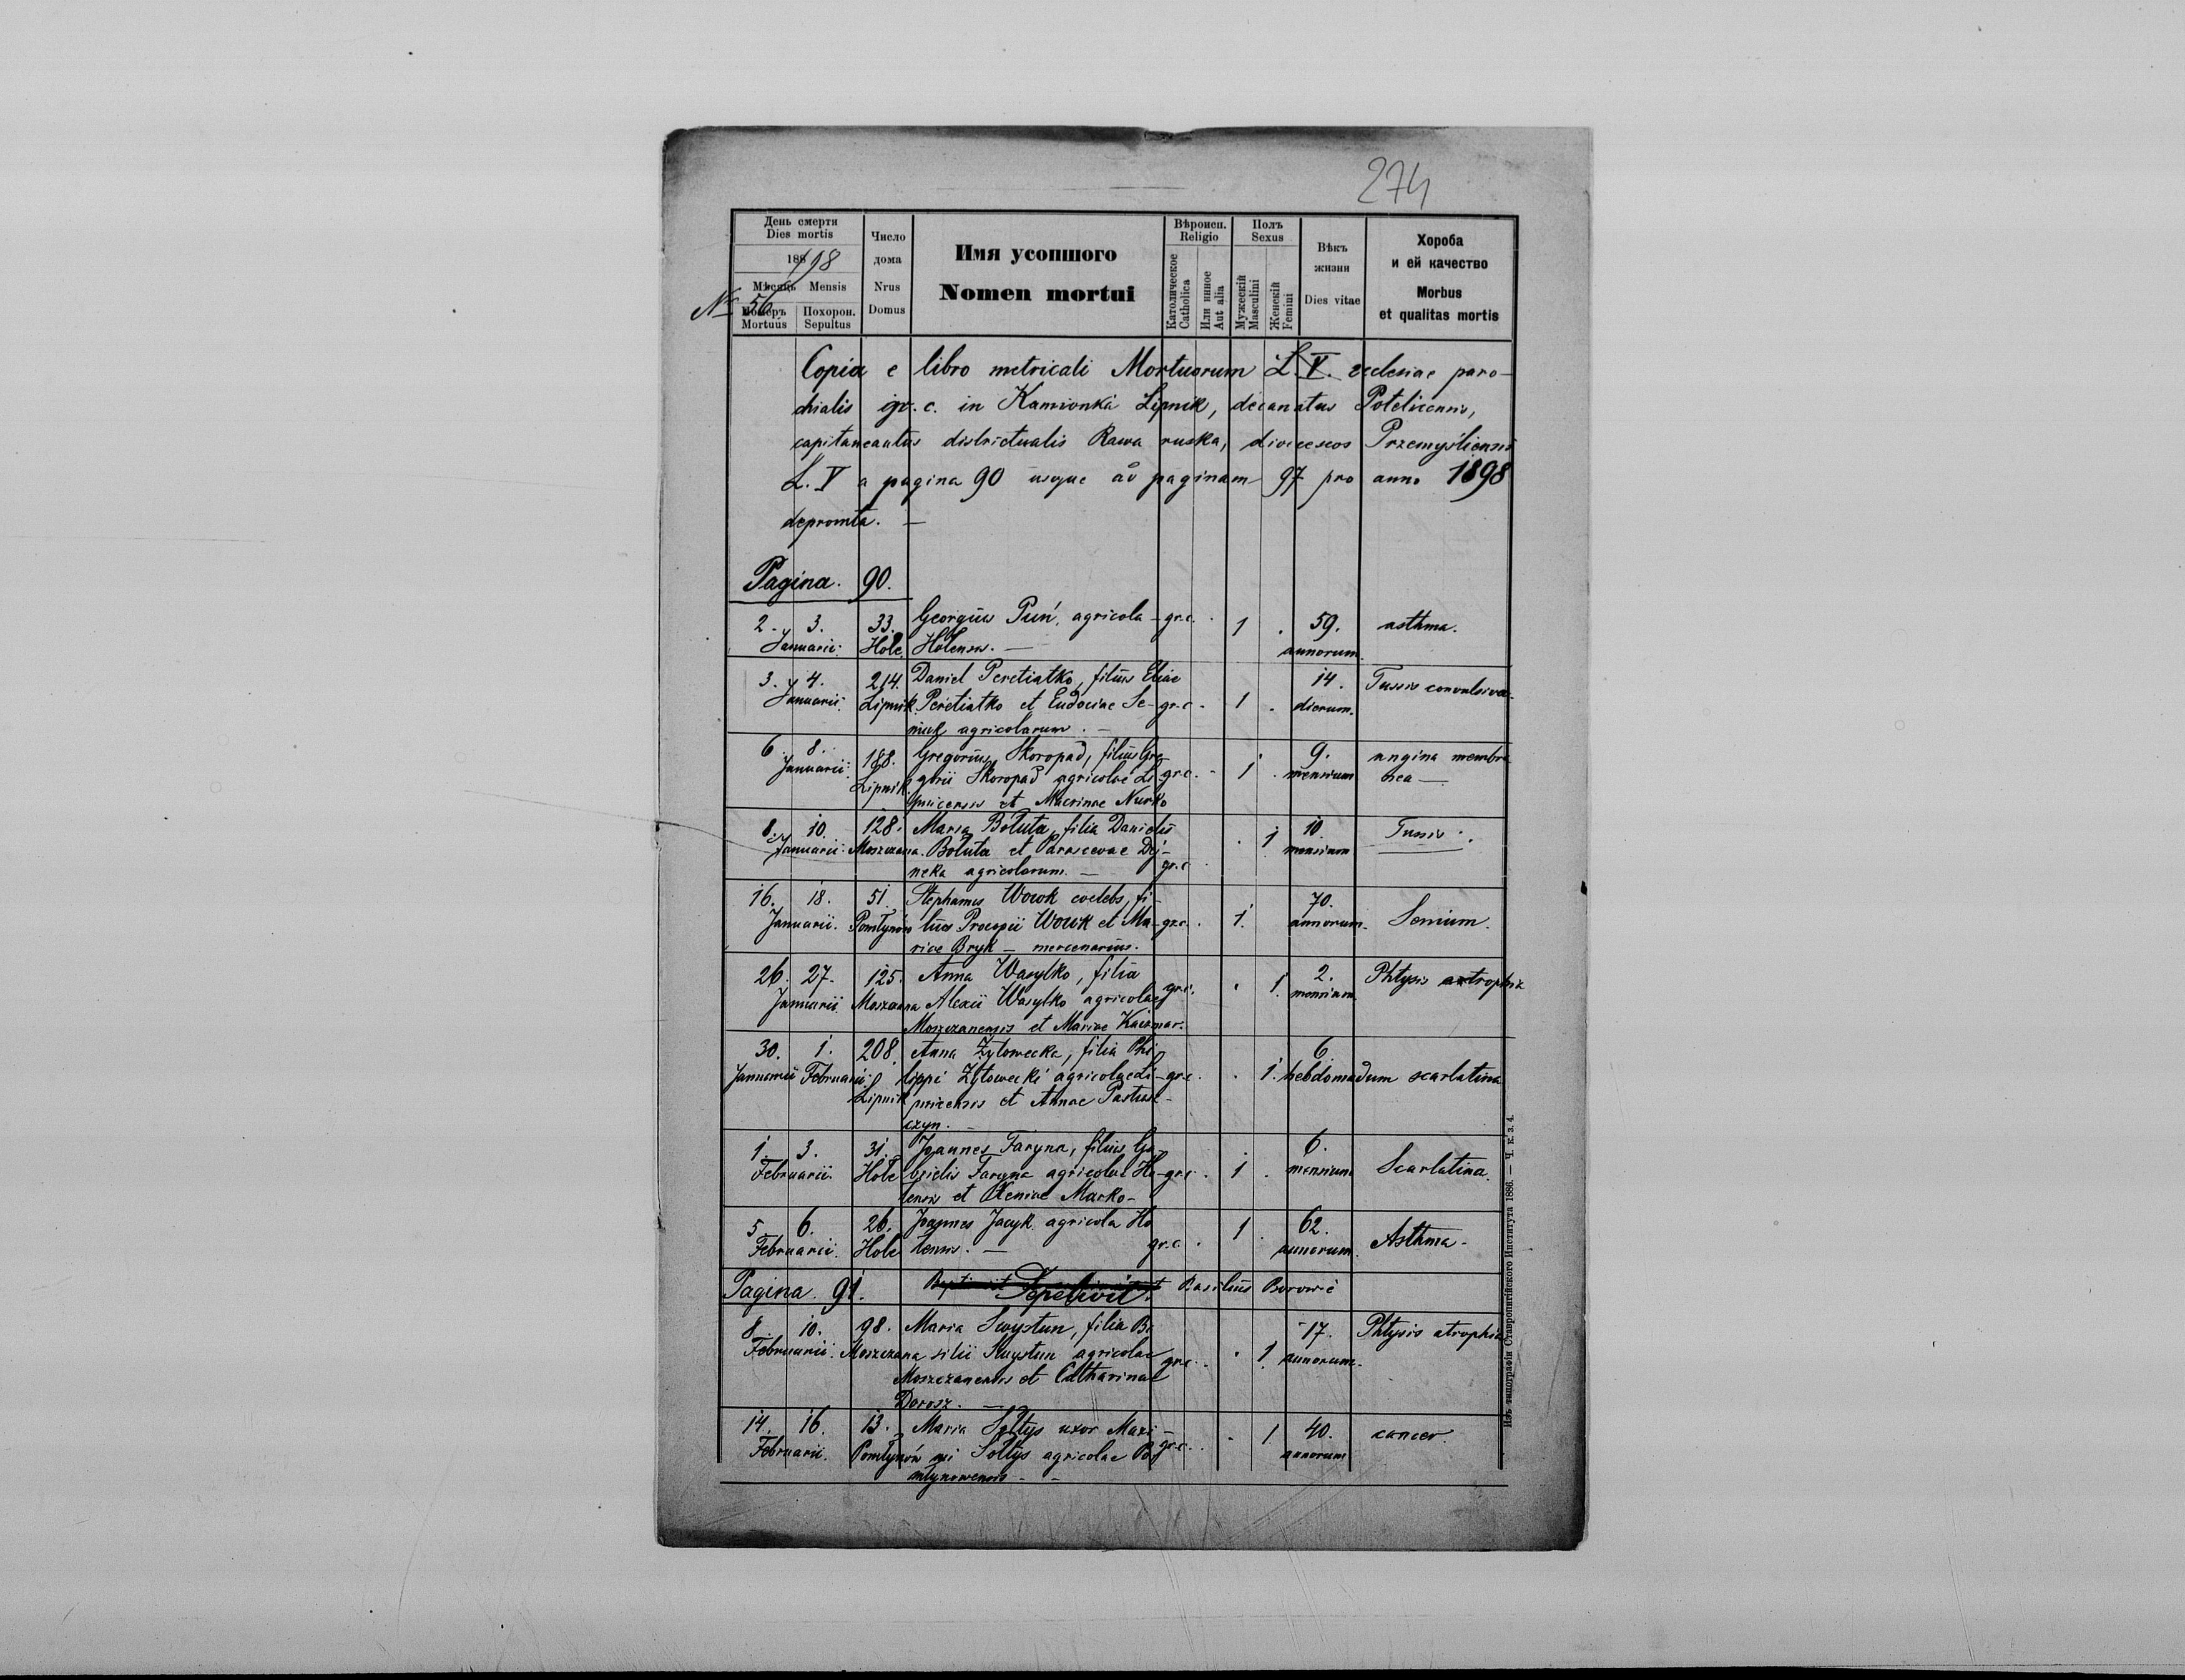 274
День смерти
Dies mortis
188 1898
Мѣсяць Mensis
№ 56
Померъ Mortuus
Похорон. Sepultus
Число дома
Nrus Domus
Имя усопшого
Nomen mortui
Вѣроисп.
Religio
Католическое Catholica
Или инное Aut alia
Полъ
Sexus
Мужескій Masculini
Женскій Femini
Вѣкъ жизни
Dies vitae
Хороба
и ей качество
Morbus
et qualitas mortis
Copia e libro metricali Mortuorum L. V. ecclesiae paro-
chialis gr. c. in Kamionka Lipnik, decanatus Potelicensis,
capitaneatus districtualis Rawa ruska, dioeceseos Przemysliensis
L. V a pagina 90 usque ad paginam 97 pro anno 1898
depromta. —
Pagina. 90.
2. 3. 33. Georgius Puń, agricola gr.c. 1 59. asthma.
Januarii. Hole Holensis. — annorum.
3. 4. 214. Daniel Peretiatko, filius Eliae 14. Tussis convulsiva.
Januarii. Lipnik Peretiatko et Eudociae Se- gr.c. 1 dierum.
niuk agricolarum. —
6. 8. 188. Gregorius Skoropad, filius Gre- 9. angina membra-
Januarii. Lipnik gorii Skoropad agricolae Li- gr.c. 1 mensium nea —
pnicensis et Macrinae Nurko
8. 10. 128. Maria Boluta, filia Danielis 1 10. Tussis.
Januarii. Moszczana. Boluta et Parascevae Dej- mensium
neka agricolarum. — gr.c.
16. 18. 51. Stephanus Wowk coelebs, fi- 70.
Januarii. Pomłynów lius Procopii Wowk et Ma- gr.c. 1. annorum. Senium.
riae Bryk — mercenarius.
26. 27. 125. Anna Wasylko, filia gr.c. 1. 2. Phtysis atrophia
Januarii. Moszczana Alexii Wasylko agricolae mensium.
Moszczanensis et Mariae Kaczmar.
30. 1. 208. Anna Żyłowecka, filia Phi- 6
Januarii Februarii lippi Żyłowecki agricolae Li- gr.c. 1. hebdomadum scarlatina
Lipnik pnicensis et Annae Pastusz-
czyn. —
1. 3. 31. Joannes Faryna, filius Ga- 6.
Februarii. Hole brielis Faryna agricolae Ho- gr.c. 1 mensium Scarlatina.
lensis et Xeniae Marko-
5. 6. 26. Joannes Jacyk agricola Ho 1 62.
Februarii. Hole lensis. — gr.c. annorum. Asthma.
Pagina. 91. Sepelivit. Basilius Borowic
8. 10. 98. Maria Swystun, filia Ba- 17. Phtysis atrophia
Februarii. Moszczana silii Swystun agricolae gr.c. 1 annorum.
Moszczanensis et Catharinae
Dorosz. —
14. 16. 13. Maria Sołtys uxor Maxi- gr.c. 1 40. cancer.
Februarii. Pomłynów mi Sołtys agricolae Po- annorum
młynowensis —
Изъ типографіи Ставропигійского Института 1886. — Ч. к. з. 4.